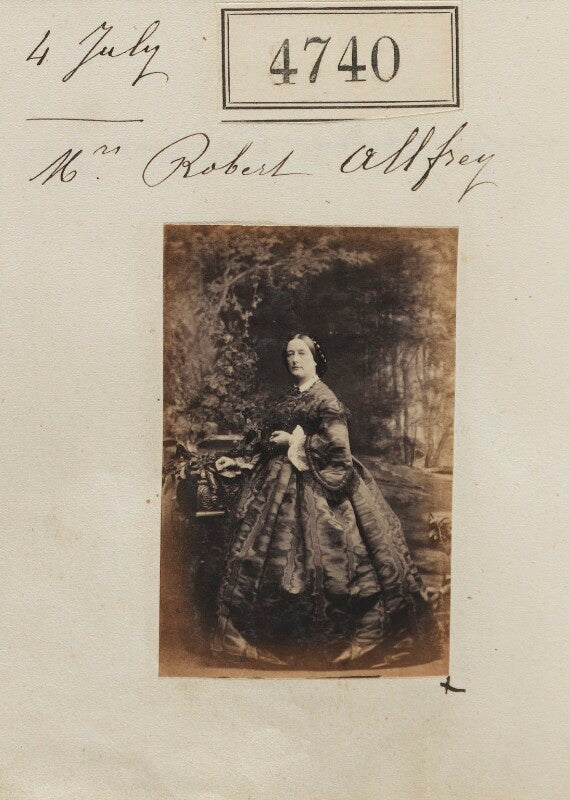 4 July
4740
Mrs. Robert Allfrey